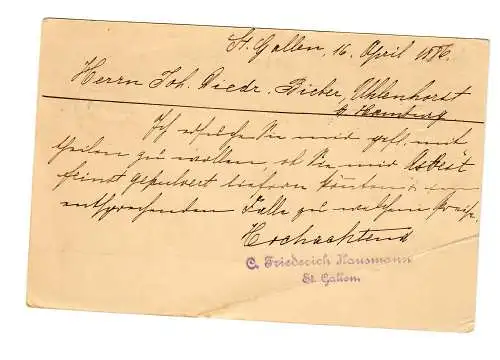 St. Gallen, 16. April 1886.
Herrn Joh. Diedr. Bieber, Uhlenhorst
b/ Hamburg
Ich ersuche Sie mir gefl. mit
theilen zu wollen, ob Sie mir Asbest
feinst gepulvert liefern könnten &
entsprechenden Falls zu welchem Preise.
Hochachtend
C. Friederich Hausmann
St. Gallen.